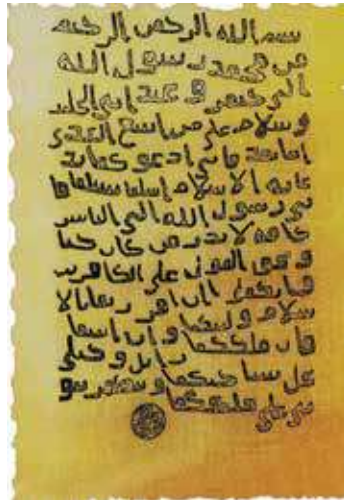 بسم الله الرحمن الرحيم
من محمد رسول الله
الى جيفر و عبد ابني الجلند
وسلام على من اتبع الهدى
اما بعد فاني ادعوكما بد
عايه الاسلام اسلما تسلما فا
ني رسول الله الى الناس
كافه لانذر من كان حيا
و يحق القول على الكافرين
فانكما ان اقررتما بالا
سلام وليتكما و ان ابيتما
فان ملككما زايل و خيلي
تحل بساحتكما وتظهر نبو
تي على ملككما